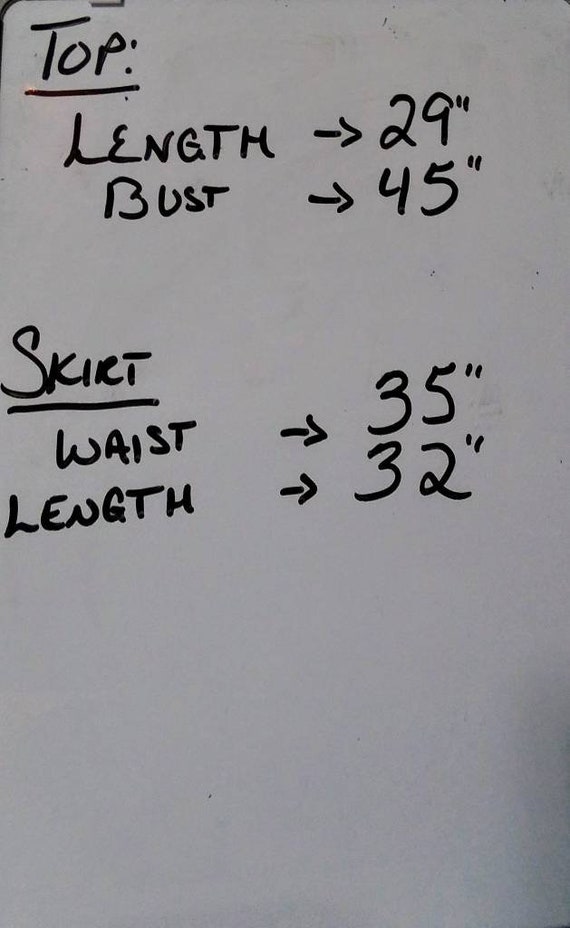 TOP:
LENGTH → 29"
BUST → 45"
SKIRT
WAIST → 35"
LENGTH → 32"